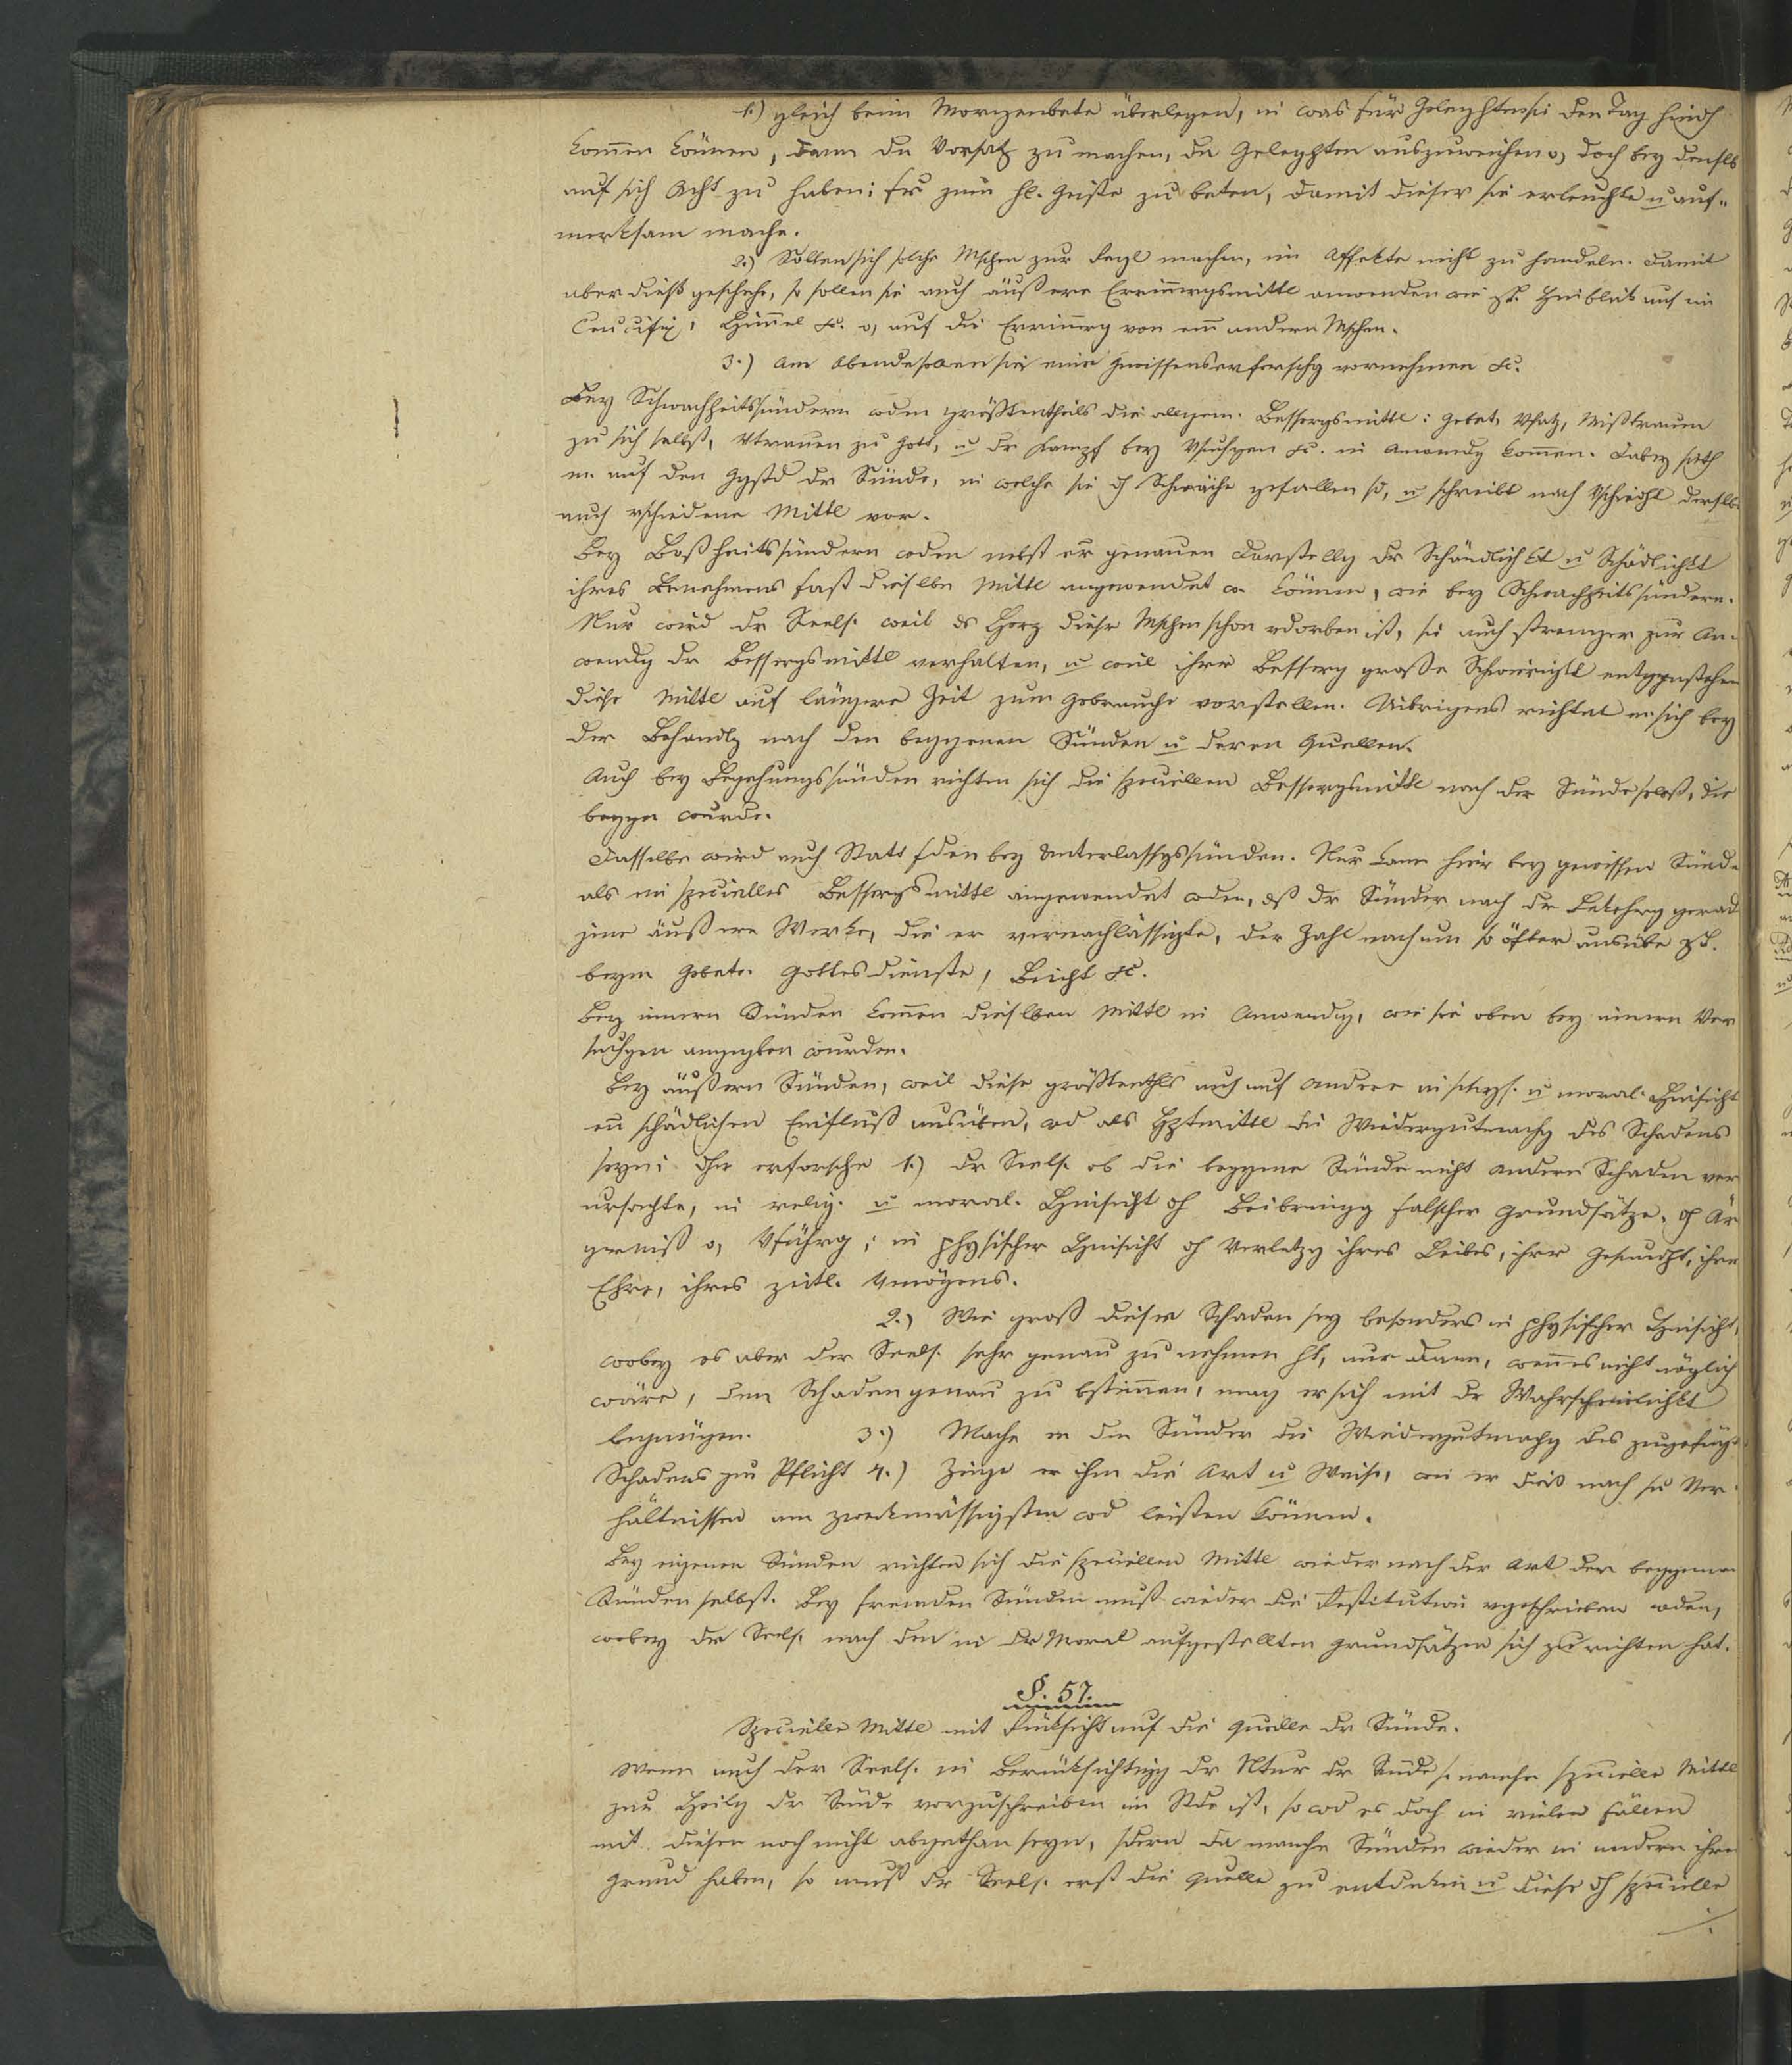 1.) gleich beim Morgenbete überlegen, in was für Gelegghten sie den Tag hindch
kommen können, dann den Vorsatz zu machen, den Gelegghten auszuweichen o, doch bey denslb
auf sich Acht zu haben; fer zum hl. Geiste zu beten, damit dieser sie erleuchte u auf-
merksam mache.
2.) Sollen sich solche Mschen zur Regl machen, im Affekte nicht zu handeln. Damit
aber dieß geschehe, so sollen sie auch äußere Erinnergsmittl anwenden wie zB. Hinblick auf ein
Crucifix, Himmel &c. o, auf die Erinnerg von em andern Mschen.
3.) Am Abende sollen sie eine Gewissenserforschg vornehmen &c.
Bey Schwachheitssündern wden größtentheils die allgem. Bessergsmittl: Gebet, Vsatz, Mißtrauen
zu sich selbst, Vtrauen zu Gott, u dr Kampf bey Vsuchgen &c. in Anwendg kommen. Dabey sieht
m. auf den Ggstd dr Sünde, in welche sie dch Schwäche gefallen sd, u schreibt nach Vschiedht derslb
auch vschiedene Mittl vor.
Bey Boßheitssündern wden nebst er genauen Darstellg dr Schändlichkt u Schädlichkt
ihres Benehmens fast dieslbn Mittl angewendet w. können, wie bey Schwachheitssündern.
Nur wird dr Seels. weil ds Herz dieser Mschen schon vdorben ist, sie auch strenger zur An-
wendg dr Bessergsmittl verhalten, u weil ihrer Besserg große Schwierigkt entggnstehen
diese Mittl auf längere Zeit zum Gebrauche vorstellen. Uibrigens richtet er sich bey
der Behandlg nach den begggenen Sünden u deren Quellen.
Auch bey Begehungssünden richten sich die speciellen Bessergsmittl nach der Sünde selbst, die
beggn wurde.
Dasselbe wird auch Statt fden bey Unterlassgssünden. Nur kann hier bey gewissen Sünd.
als ein specielles Bessergsmittl angewendet wden, dß dr Sünder nach dr Bekehrg gerad
jene äußere Werke, die er vernachlässigte, der Zahl nach um so öfter ausübe zB.
beym Gebete Gottesdienste, Beicht &c.
Bey innern Sünden kommen dieslben Mittl in Anwendg, wie sie oben bey innern Ver
suchgen angegeben wurden.
Bey äußern Sünden, weil diese größtenthls auch auf Andere in phys. u moral. Hinsicht
en schädlichen Einfluß ausüben, wd als Hptmittl die Wiedergutmachg des Schadens
seyn; dhr erforsche 1.) dr Seels. ob die begggne Sünde nicht andern Schaden ver
ursachte, in relig. u moral. Hinsicht dch Beibringg falscher Grundsätze, dch Är
gerniß o, Vführg; in physischer Hinsicht dch Verletzg ihres Leibes, ihrer Gesundht, ihrer
Ehre, ihres zeitl. Vmögens.
2.) Wie groß dieser Schaden sey besonders in physischer Hinsicht,
wobey es aber der Seels. sehr genau zu nehmen ht, nur dann, wenn es nicht möglich
wäre, den Schaden genau zu bstimmen, mag er sich mit dr Wahrscheinlichkt
begnügen. 3.) Mache er den Sünder die Wiedergutmachg des zugefügt
Schadens zur Pflicht 4.) Zeige er ihm die Art u Weise, wie er dieß nach sn Ver-
hältnissen am zweckmässigsten wd leisten können.
Bey eigenen Sünden richten sich die speciellen Mittl wieder nach der Art der begggenen
Sünden selbst. Bey fremden Sünden muß wieder die Restitution vgeschrieben wden,
wobey dr Seels. nach den in dr Moral aufgestellten Grundsätzen sich zu richten hat.
§. 57.
Specielle Mittl mit Rücksicht auf die Quelle dr Sünde.
Wenn auch der Seels. in Berücksichtigg dr Ntur dr Sünde so manche specielle Mittl
zur Heilg dr Sünde vorzuschreiben im Stde ist, so wd es doch in vielen Fällen
mit diesen noch nicht abgethan seyn, sdern da manche Sünden wieder in andern ihren
Grund haben, so muß dr Seels. erst die Quelle zu entdecken u diese dch specielle
./.